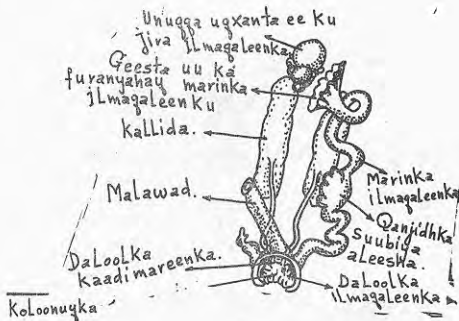 Unugga ugxanta ee ku
jira ilmagaleenka
Geesta uu ka
furanyahay marinka
ilmagaleenku
Kallida.
Malawad.
Marinka
ilmagaleenka
Qanjidhka
Suubiya
aLeesha.
DaLoolKa
Kaadimareenka.
DaLoolka
ilmagaleenka
Koloonuyka